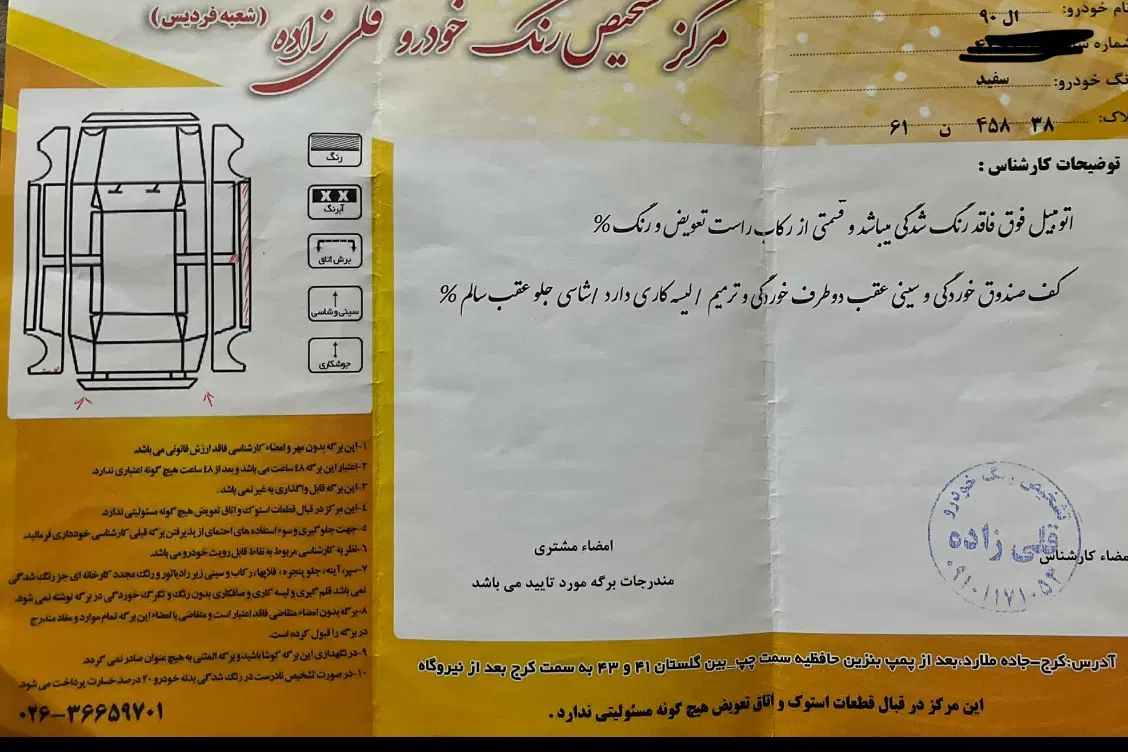 مرکز تشخیص رنگ خودرو قلی زاده (شعبه فردیس)
نام خودرو: ال ۹۰
شماره
رنگ خودرو: سفید
پلاک: ۳۸ ۴۵۸ ن ۶۱
رنگ
XX
آبرنگ
برش اتاق
سینی و شاسی
جوشکاری
توضیحات کارشناس :
اتومبیل فوق فاقد رنگ شدگی میباشد و قسمتی از رکاب راست تعویض و رنگ %
کف صندوق خوردگی و سینی عقب دو طرف خوردگی و ترمیم / لیسه کاری دارد / شاسی جلو عقب سالم %
امضاء مشتری
مندرجات برگه مورد تایید می باشد
امضاء کارشناس
تشخیص رنگ خودرو
قلی زاده
۱-این برگه بدون مهر و امضاء کارشناسی فاقد ارزش قانونی می باشد.
۲-اعتبار این برگه ۴۸ ساعت می باشد و بعد از ۴۸ ساعت هیچ گونه اعتباری ندارد.
۳-این برگه قابل واگذاری به غیر نمی باشد.
۴-این مرکز در قبال قطعات استوک و اتاق تعویض هیچ گونه مسئولیتی ندارد.
۵-جهت جلوگیری و سوء استفاده های احتمای از پذیرفتن برگه قبلی کارشناسی خودداری فرمائید.
۶-نظریه کارشناسی مربوط به نقاط قابل رویت خودرو می باشد.
۷-سپر، آینه، جلو پنجره، قلاپها، رکاب و سینی زیر رادیاتور و رنگ مجدد کارخانه ای جز رنگ شدگی
نمی باشد قلم گیری و لیسه کاری و صافکاری بدون رنگ و تگرگ خوردگی در برگه نوشته نمی شود.
۸-برگه بدون امضاء متقاضی فاقد اعتبار است و متقاضی با امضاء این برگه تمام موارد و مفاد مندرج
در برگه را قبول کرده است.
۹-در نگهداری این برگه کوشا باشید و برگه المثنی به هیچ عنوان صادر نمی گردد.
۱۰-در صورت تشخیص نادرست در رنگ شدگی بدنه خودرو ۲۰ درصد خسارت پرداخت می شود.
۰۲۶-۳۶۶۵۹۷۰۱
آدرس:کرج-جاده ملارد،بعد از پمپ بنزین حافظیه سمت چپ_بین گلستان ۴۱ و ۴۳ به سمت کرج بعد از نیروگاه
این مرکز در قبال قطعات استوک و اتاق تعویض هیچ گونه مسئولیتی ندارد .